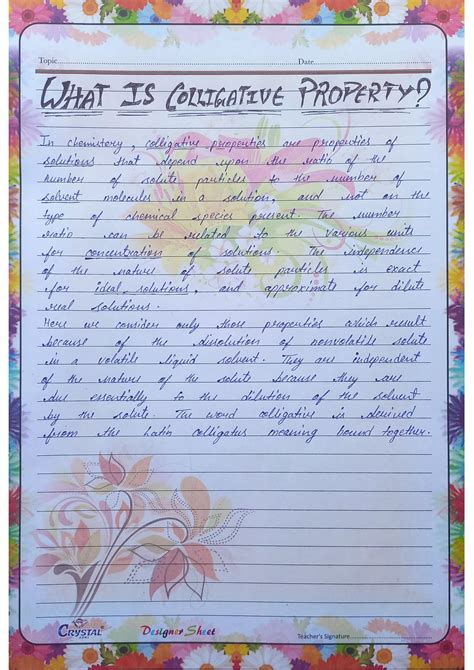 Topic.......... Date..........
WHAT IS COLLIGATIVE PROPERTY?
In chemistry, colligative properties are properties of
solutions that depend upon the ratio of the
number of solute particles to the number of
solvent molecules in a solution, and not on the
type of chemical species present. The number
ratio can be related to the various units
for concentration of solutions. The independence
of the nature of solute particles is exact
for ideal solutions, and approximate for dilute
real solutions.
Here we consider only those properties which result
because of the dissolution of nonvolatile solute
in a volatile liquid solvent. They are independent
of the nature of the solute because they are
due essentially to the dilution of the solvent
by the solute. The word colligative is derived
from the Latin colligatus meaning bound together.
CRYSTAL Designer Sheet Teacher's Signature..........